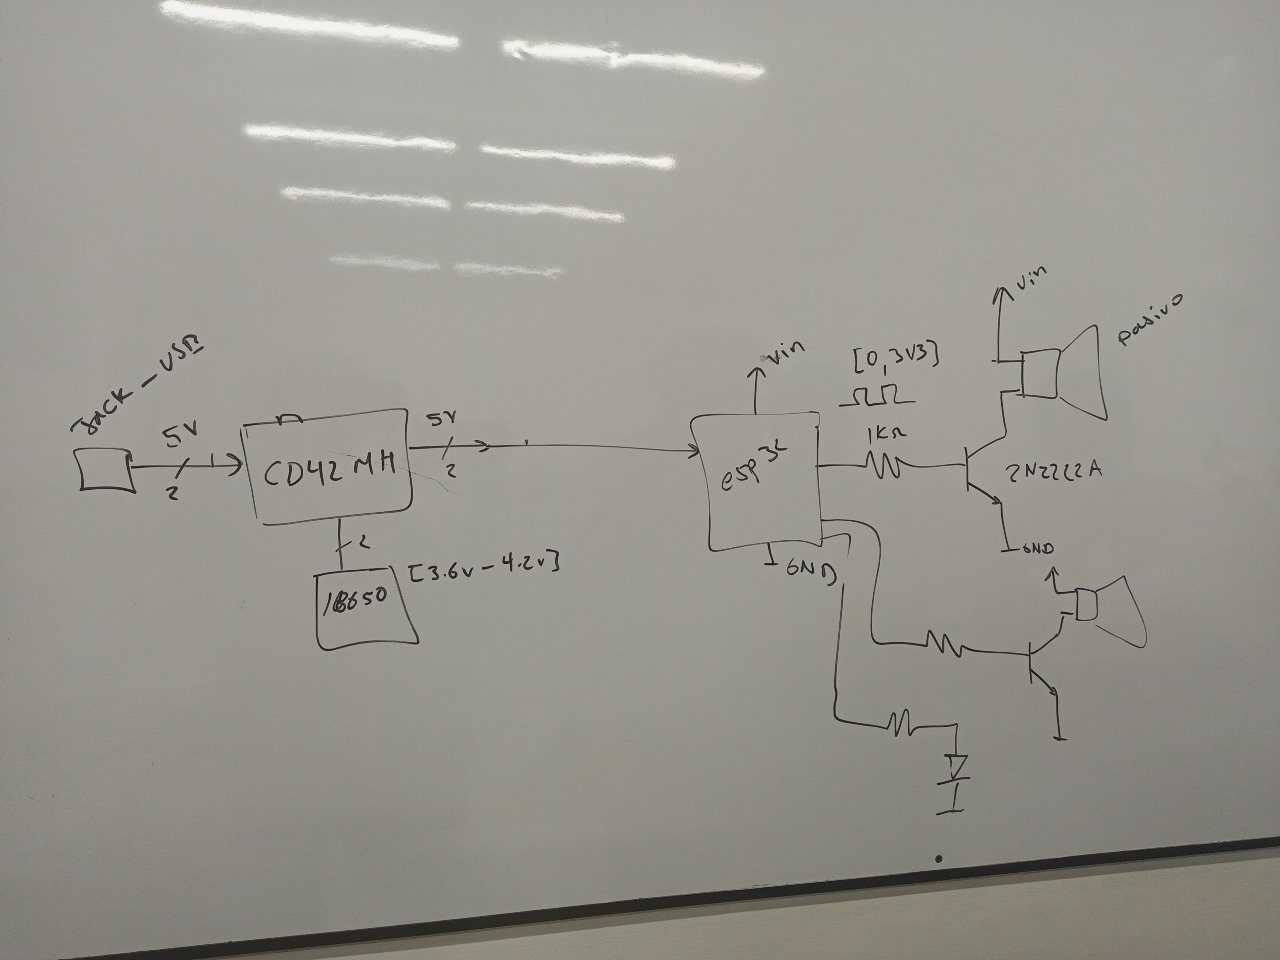 Jack - USB
5V
2
CD42 MH
5V
2
2
18650
[3.6v - 4.2v]
esp32
vin
GND
[0, 3V3]
1KΩ
2N2222A
vin
pasivo
GND